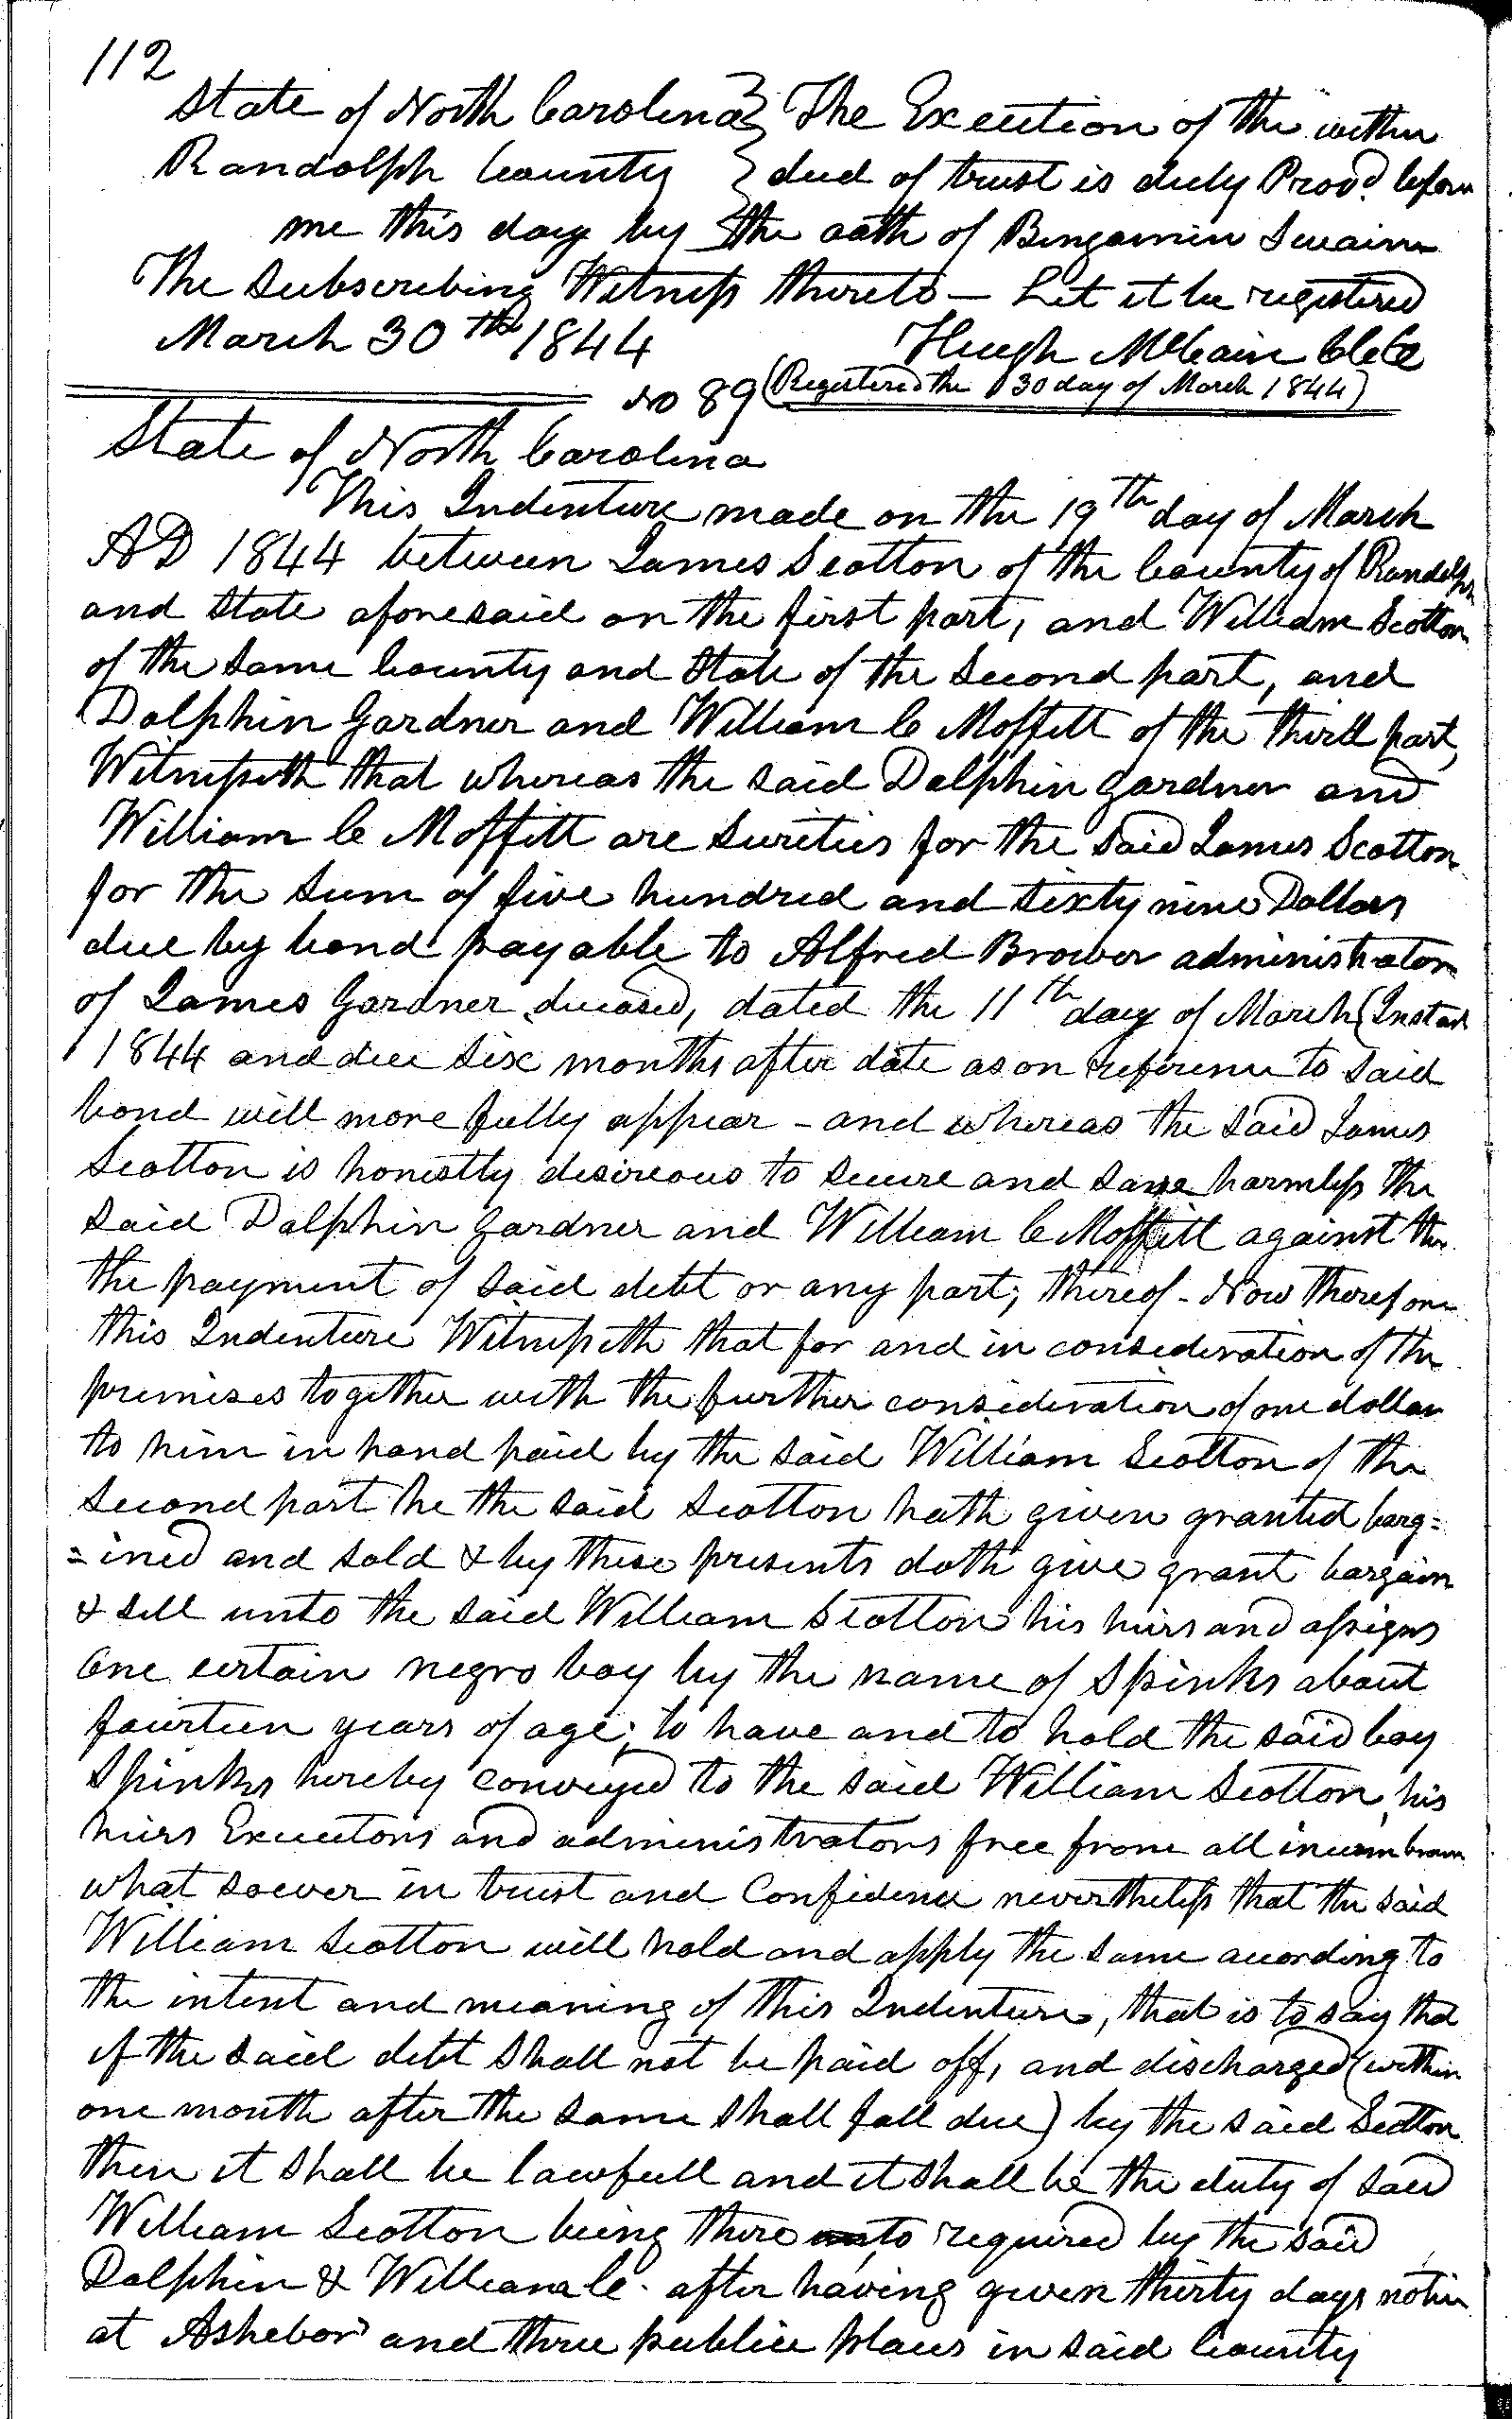 112
State of North Carolina } The Execution of the within
Randolph County } deed of trust is duly Provd. before
me this day by the oath of Bengamin Swaim
The Subscribing Witness thereto — Let it be registered
March 30th 1844 Hugh McCain Clk
No 89 (Registered the 30 day of March 1844)
State of North Carolina
This Indenture made on the 19th day of March
AD 1844 between James Scotton of the County of Randolph
and State aforesaid on the first part, and William Scotton
of the Same County and State of the Second part, and
Dolphin Gardner and William C Moffitt of the third part,
Witnesseth that whereas the said Dolphin Gardner and
William C Moffitt are Sureties for the said James Scotton
for the Sum of five hundred and sixty nine Dollars
due by bond payable to Alfred Brower administrator
of James Gardner deceased, dated the 11th day of March (Instant
1844 and due six months after date as on reference to said
bond will more fully appear - and whereas the said James
Scotton is honestly desireous to secure and save harmless the
said Dolphin Gardner and William C Moffitt against the
the payment of said debt or any part; thereof - Now therefore
this Indenture Witnesseth that for and in consideration of the
premises together with the further consideration of one dollar
to him in hand paid by the said William Scotton of the
Second part he the said Scotton hath given granted barg=
=ined and sold & by these presents doth give grant bargain
& sell unto the said William Scotton his heirs and assigns
One certain negro boy by the name of Spinks about
fourteen years of age; to have and to hold the said boy
Spinks hereby conveyed to the said William Scotton, his
heirs Executors and administrators free from all incumbrance
what soever in trust and Confidence nevertheless that the said
William Scotton will hold and apply the same according to
the intent and meaning of this Indenture, that is to say that
if the said debt shall not be paid off, and discharged (within
one month after the same shall fall due) by the said Scotton
then it shall be lawfull and it shall be the duty of said
William Scotton being there to required by the said
Dolphin & William C. after having given thirty days notice
at Ashebor and three publice places in said County